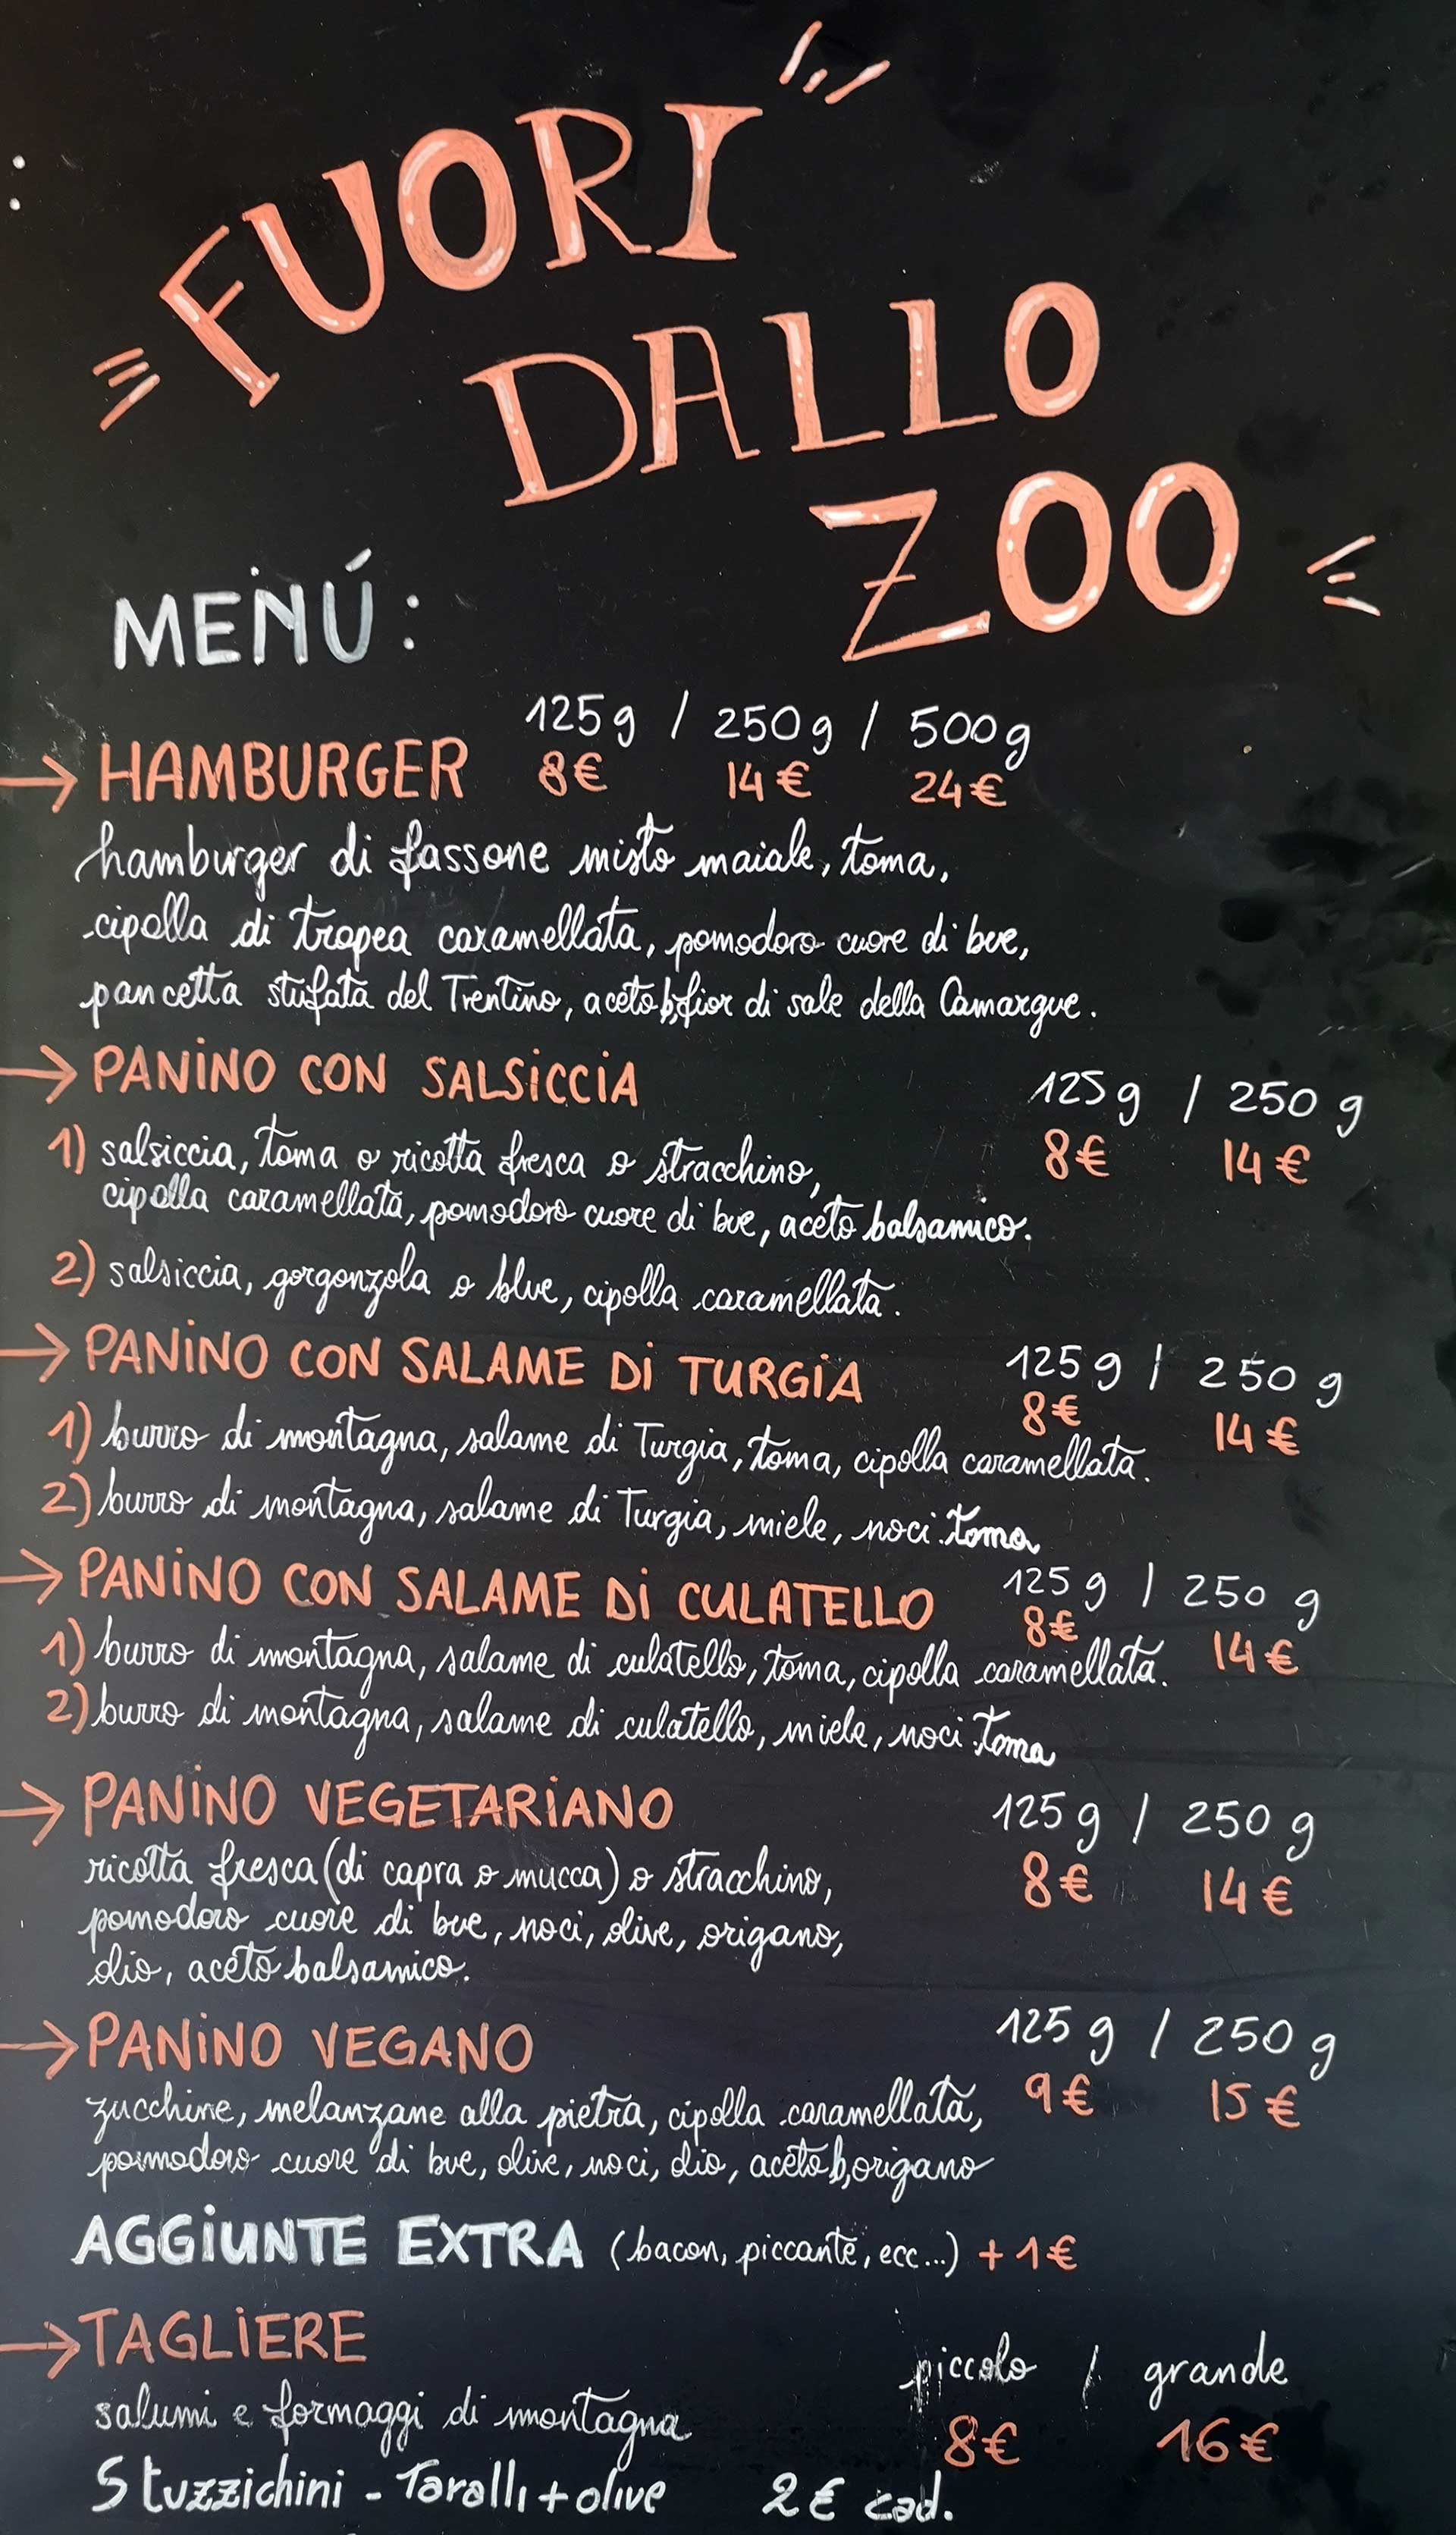 FUORI
DALLO
ZOO
MENÚ:
125g / 250g / 500g
→ HAMBURGER 8€ 14€ 24€
hamburger di fassone misto maiale, toma,
cipolla di tropea caramellata, pomodoro cuore di bue,
pancetta stufata del Trentino, aceto b, fior di sale della Camargue.
→ PANINO CON SALSICCIA 125g / 250 g
8€ 14€
1) salsiccia, toma o ricotta fresca o stracchino,
cipolla caramellata, pomodoro cuore di bue, aceto balsamico.
2) salsiccia, gorgonzola o blue, cipolla caramellata.
→ PANINO CON SALAME DI TURGIA 125g / 250 g
8€ 14€
1) burro di montagna, salame di Turgia, toma, cipolla caramellata.
2) burro di montagna, salame di Turgia, miele, noci. toma
→ PANINO CON SALAME DI CULATELLO 125g / 250 g
8€ 14€
1) burro di montagna, salame di culatello, toma, cipolla caramellata.
2) burro di montagna, salame di culatello, miele, noci. toma
→ PANINO VEGETARIANO 125g / 250 g
8€ 14€
ricotta fresca (di capra o mucca) o stracchino,
pomodoro cuore di bue, noci, olive, origano,
olio, aceto balsamico.
→ PANINO VEGANO 125 g / 250 g
9€ 15€
zucchine, melanzane alla pietra, cipolla caramellata,
pomodoro cuore di bue, olive, noci, olio, aceto b, origano
AGGIUNTE EXTRA (bacon, piccante, ecc...) +1€
→ TAGLIERE
piccolo / grande
salumi e formaggi di montagna 8€ 16€
Stuzzichini - Taralli + olive 2€ cad.